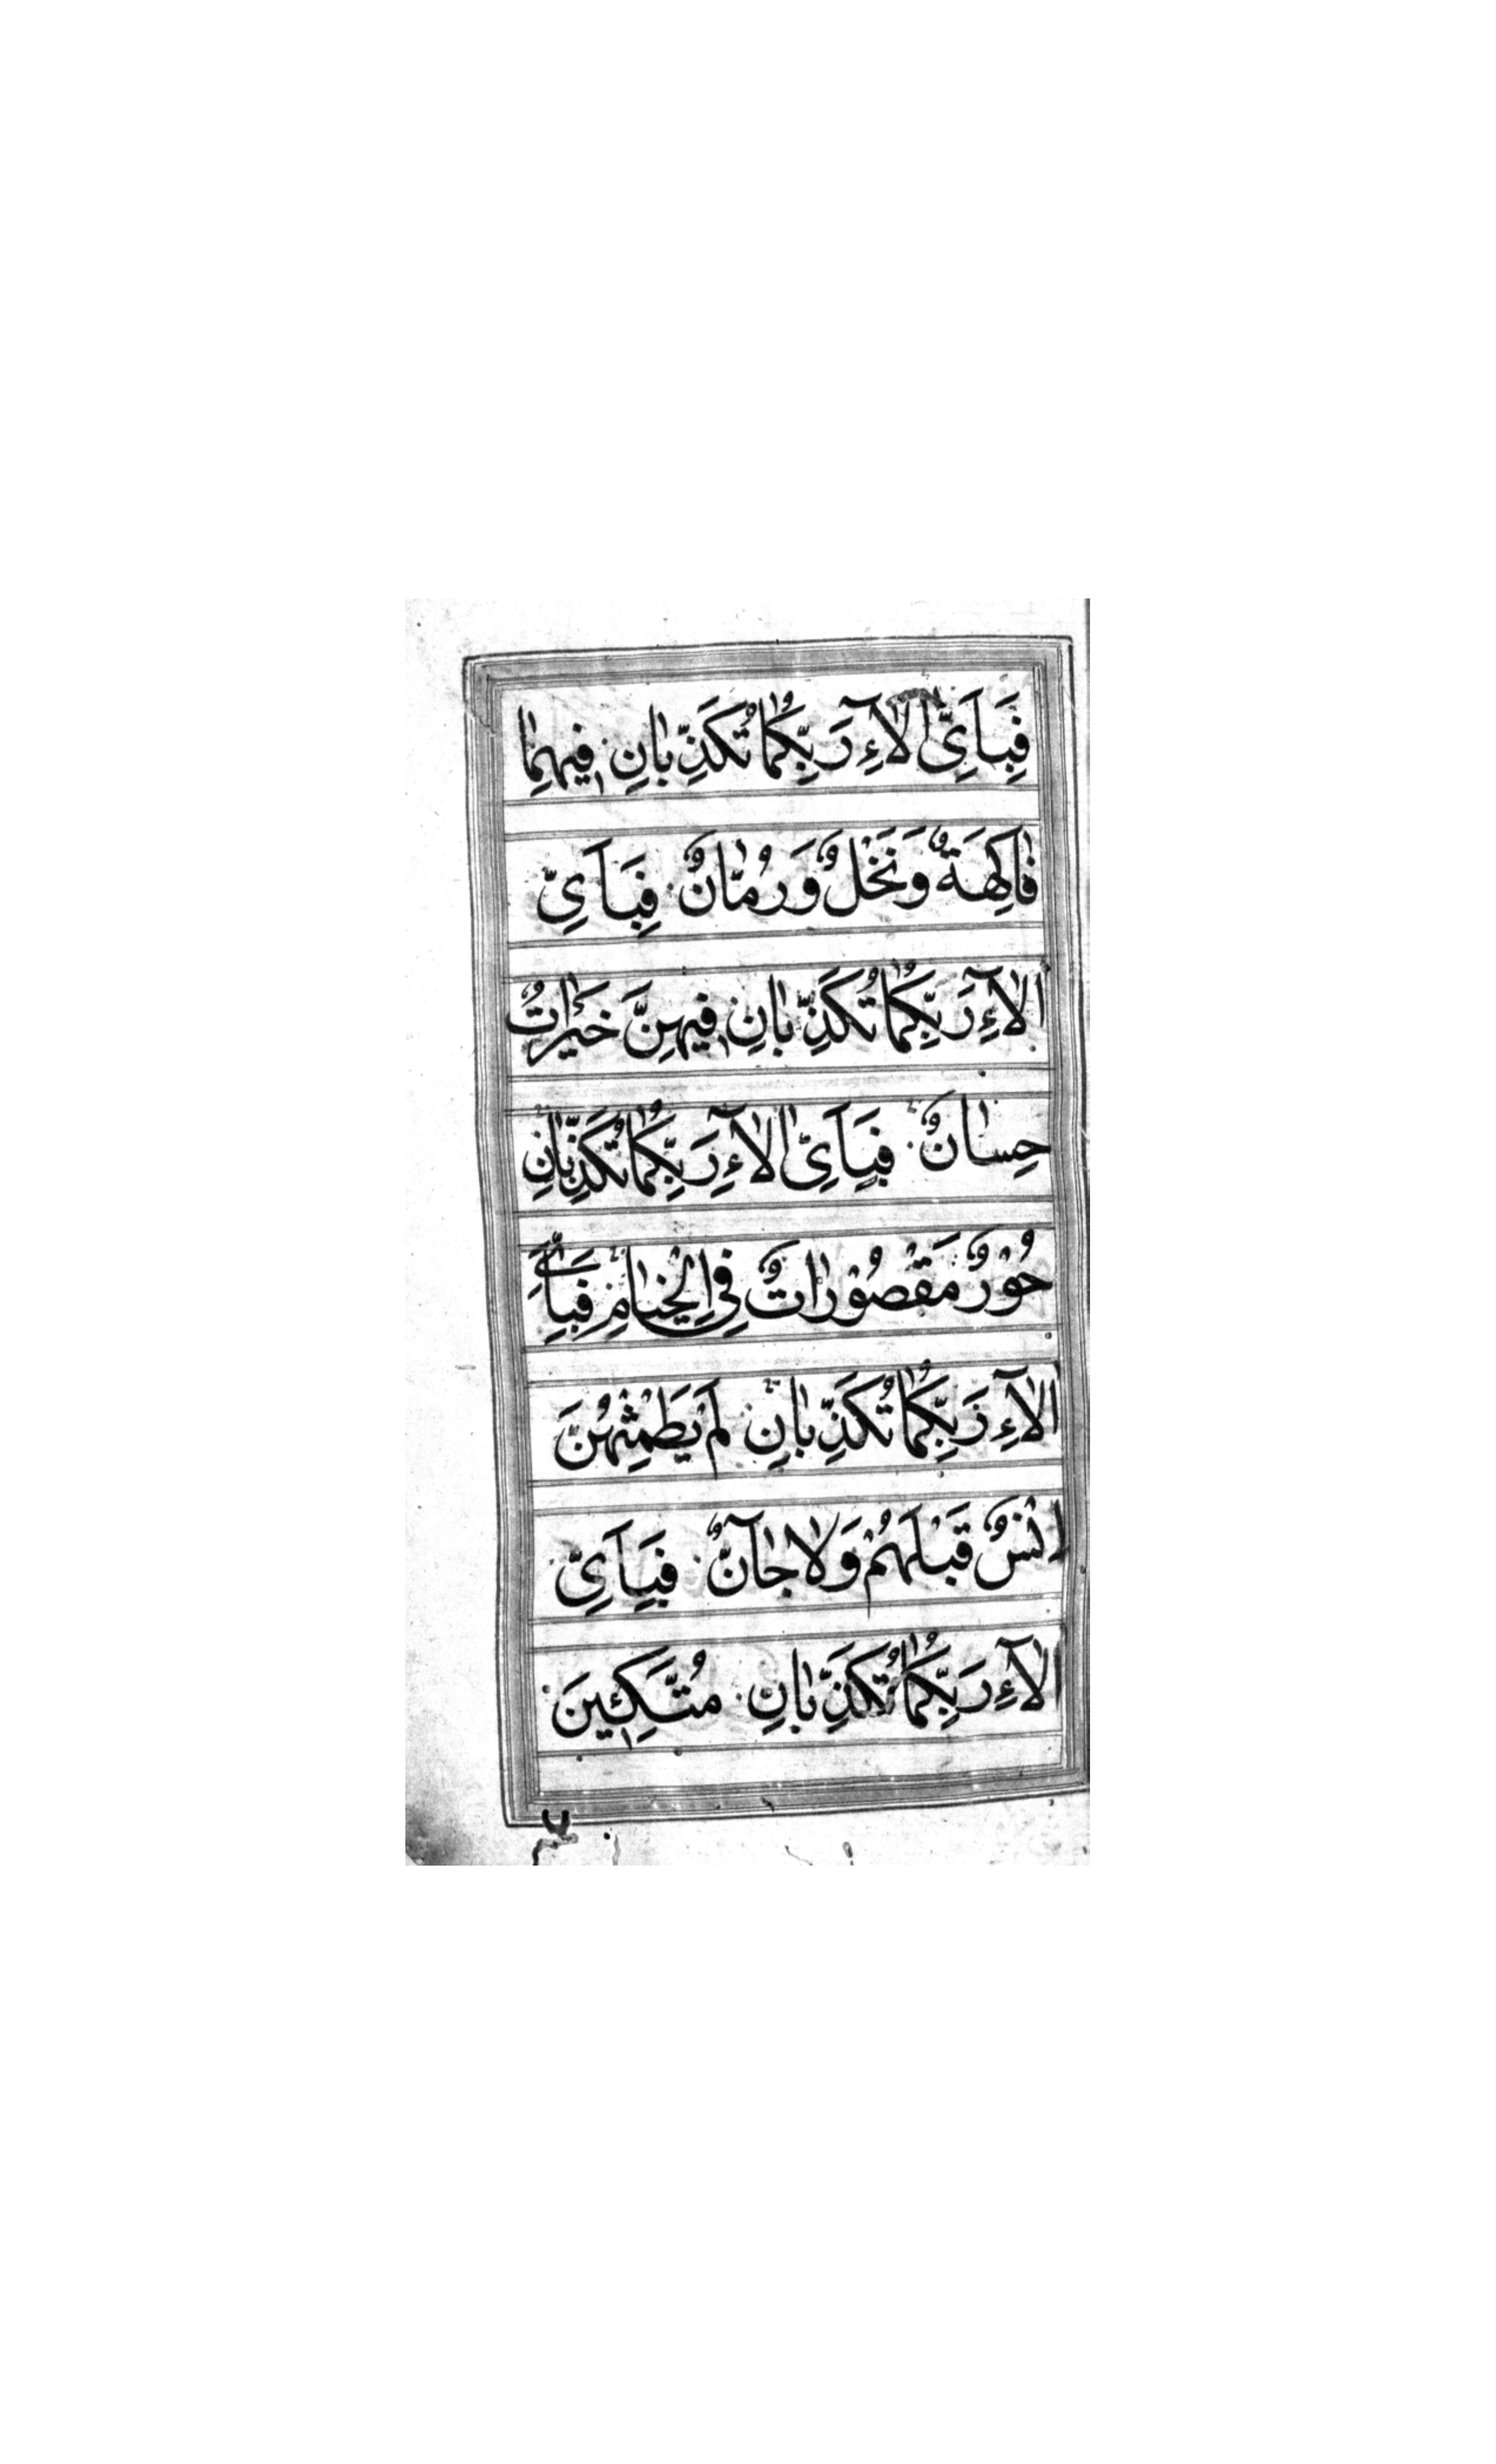 فَبِاَيِّ اٰلَآءِ رَبِّكُمٰا تُكَذِّبٰانِ فيهِمٰا
فٰاكِهَةٌ وَنَخْلٌ وَرُمّٰانٌ فَبِاَيِّ
اٰلَآءِ رَبِّكُمٰا تُكَذِّبٰانِ فيهِنَّ خَيْرٰاتٌ
حِسٰانٌ فَبِاَيِّ اٰلَآءِ رَبِّكُمٰا تُكَذِّبٰانِ
حُوْرٌ مَقْصُوْرٰاتٌ فِي الْخِيٰامِ فَبِاَيِّ
اٰلَآءِ رَبِّكُمٰا تُكَذِّبٰانِ لَمْ يَطْمِثْهُنَّ
اِنْسٌ قَبْلَهُمْ وَلٰا جٰآنٌّ فَبِاَيِّ
اٰلَآءِ رَبِّكُمٰا تُكَذِّبٰانِ مُتَّكِـٔينَ